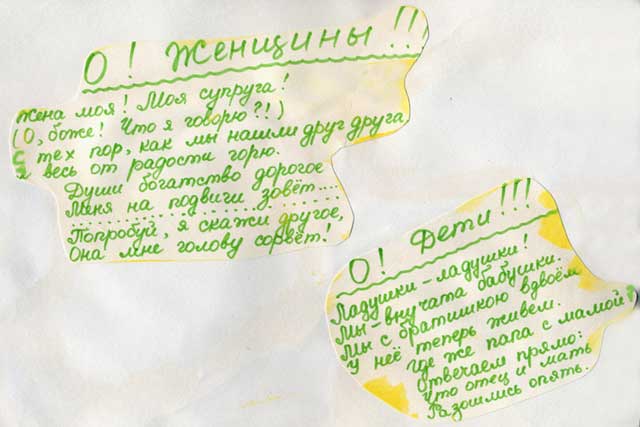 О! Женщины!!!
Жена моя! Моя супруга!
(О, боже! Что я говорю?!)
С тех пор, как мы нашли друг друга,
я весь от радости горю.
Души богатство дорогое
Меня на подвиги зовёт....
Попробуй, я скажи другое,
Она мне голову сорвёт!
О! Дети!!!
Ладушки-ладушки!
Мы-внучата бабушки.
Мы с братишкою вдвоём
У неё теперь живём.
Где же папа с мамой?
Отвечаем прямо:
Что отец и мать
Разошлись опять.